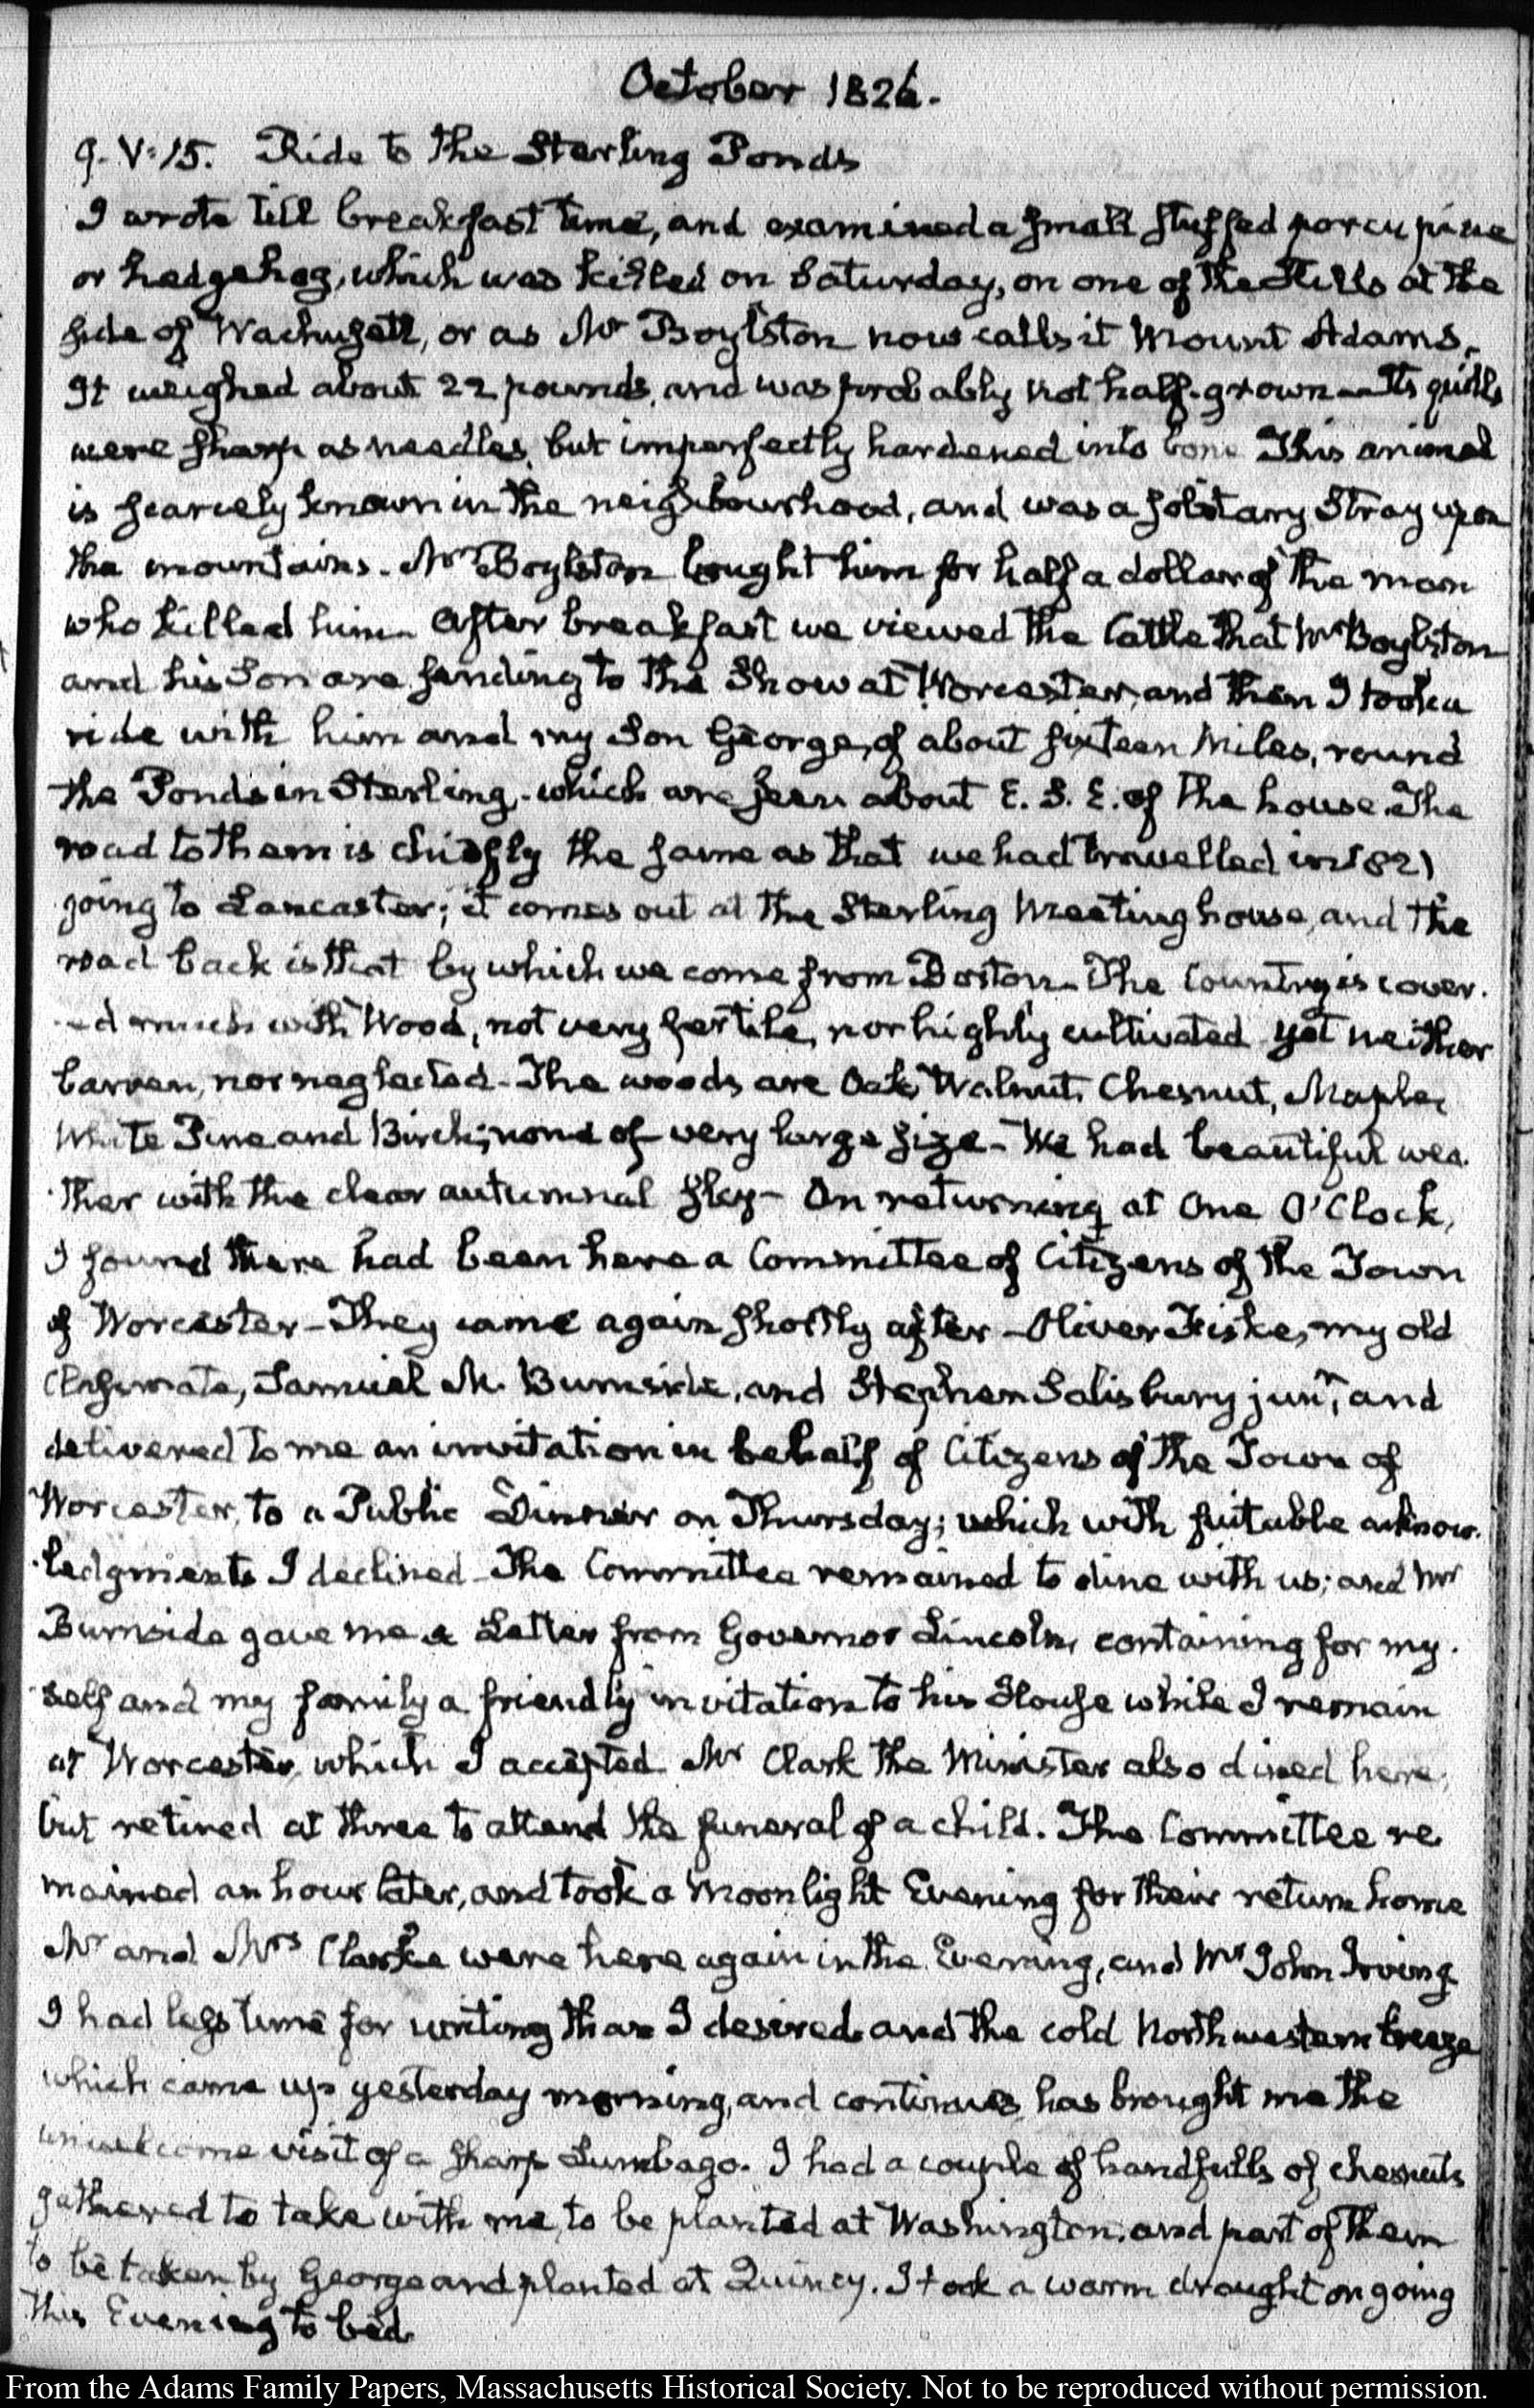 October 1826.
9. V:15. Ride to the Sterling Ponds
I wrote till breakfast time, and examined a small stuffed porcupine
or hedgehog, which was killed on Saturday, on one of the Hills at the
side of Wachusett, or as Mr Boylston now calls it Mount Adams.
It weighed about 22 pounds, and was probably not half-grown — Its quills
were sharp as needles, but imperfectly hardened into bone This animal
is scarcely known in the neighbourhood, and was a solitary stray upon
the mountains. Mr Boylston bought him for half a dollar of the man
who killed him. After breakfast we viewed the Cattle that Mr Boylston
and his Son are sending to the Show at Worcester, and then I took a
ride with him and my Son George, of about sixteen Miles, round
the Ponds in Sterling, which are seen about E. S. E. of the house. The
road to them is chiefly the same as that we had travelled in 1821
going to Lancaster; it comes out at the Sterling Meeting house, and the
road back is that by which we come from Boston. The Country is cover.
ed much with Wood, not very fertile, nor highly cultivated yet neither
barren, nor neglected. The woods are Oak, Walnut, Chesnut, Maple,
White Pine and Birch; none of very large size. We had beautiful wea.
ther with the clear autumnal sky. On returning at One O'Clock,
I found there had been here a Committee of Citizens of the Town
of Worcester — They came again shortly after — Oliver Fiske, my old
Classmate, Samuel M. Burnside, and Stephen Salisbury junr, and
delivered to me an invitation in behalf of Citizens of the Town of
Worcester, to a Public Dinner on Thursday; which with suitable acknow.
ledgments I declined. The Committee remained to dine with us; and Mr
Burnside gave me a Letter from Governor Lincoln, containing for my.
self and my family a friendly invitation to his House while I remain
at Worcester, which I accepted. Mr Clark the Minister also dined here,
but retired at three to attend the funeral of a child. The Committee re
mained an hour later, and took a Moonlight Evening for their return home
Mr and Mrs Clarke were here again in the Evening, and Mr John Irving
I had less time for writing than I desired and the cold Northwestern breeze
which came up yesterday morning, and continues has brought me the
unwelcome visit of a sharp Lumbago. I had a couple of handfulls of chesnuts
gathered to take with me, to be planted at Washington, and part of them
to be taken by George and planted at Quincy. I took a warm draught on going
this Evening to bed.
From the Adams Family Papers, Massachusetts Historical Society. Not to be reproduced without permission.